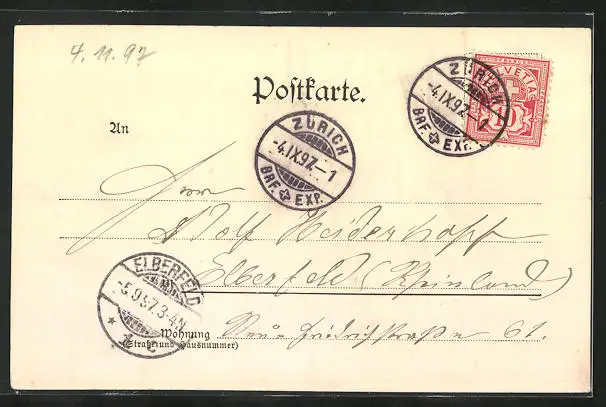 4.11.97
HELVETIA
10
ZÜRICH
-4.IX.97.-1
BRF. EXP.
Postkarte.
ZÜRICH
-4.IX.97.-1
BRF. EXP.
An
Herrn
Adolf Heiderhoff
Elberfeld (Rheinland)
ELBERFELD
-5.9.97.3-4N
* 1 c
Wohnung Neue Friedrichstraße 61.
(Straße und Hausnummer)